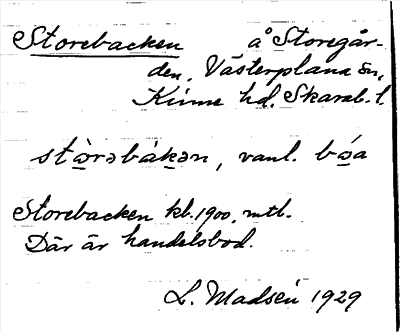 Storebacken å Storegår-
den, Västerplana sn,
Kinne hd. Skarab. l.
stòrəbákən, vanl. bóa
Storebacken kb. 1900, mtl.
Där är handelsbod.
L. Madsén 1929